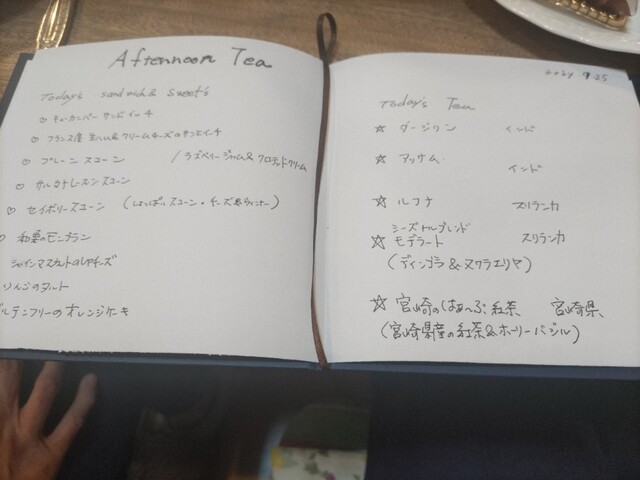 Afternoon Tea
Today's sandwich & sweet's
♡ キューカンバーサンドイッチ
♡ フランス産生ハム&クリームチーズのサンドイッチ
♡ プレーンスコーン / ラズベリージャム&クロテッドクリーム
♡ サルタナレーズンスコーン
♡ セイボリースコーン (しょっぱいスコーン・チーズ&ウィンナー)
♡ 和栗のモンブラン
シャインマスカットのレアチーズ
りんごのタルト
グルテンフリーのオレンジケーキ
9.25
Today's Tea
☆ ダージリン インド
☆ アッサム インド
☆ ルフナ スリランカ
シーズナルブレンド
☆ モデラート スリランカ
(ディンブラ&ヌワラエリヤ)
☆ 宮崎のはあ〜ぶ紅茶 宮崎県、
(宮崎県産の紅茶&ホーリーバジル)